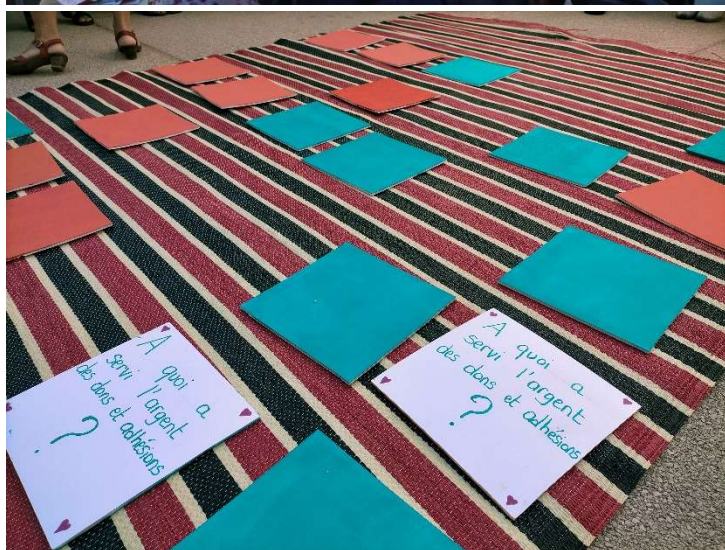 A quoi a
servi l'argent
des dons et adhésions
?
A quoi a
servi l'argent
des dons et adhésions
?